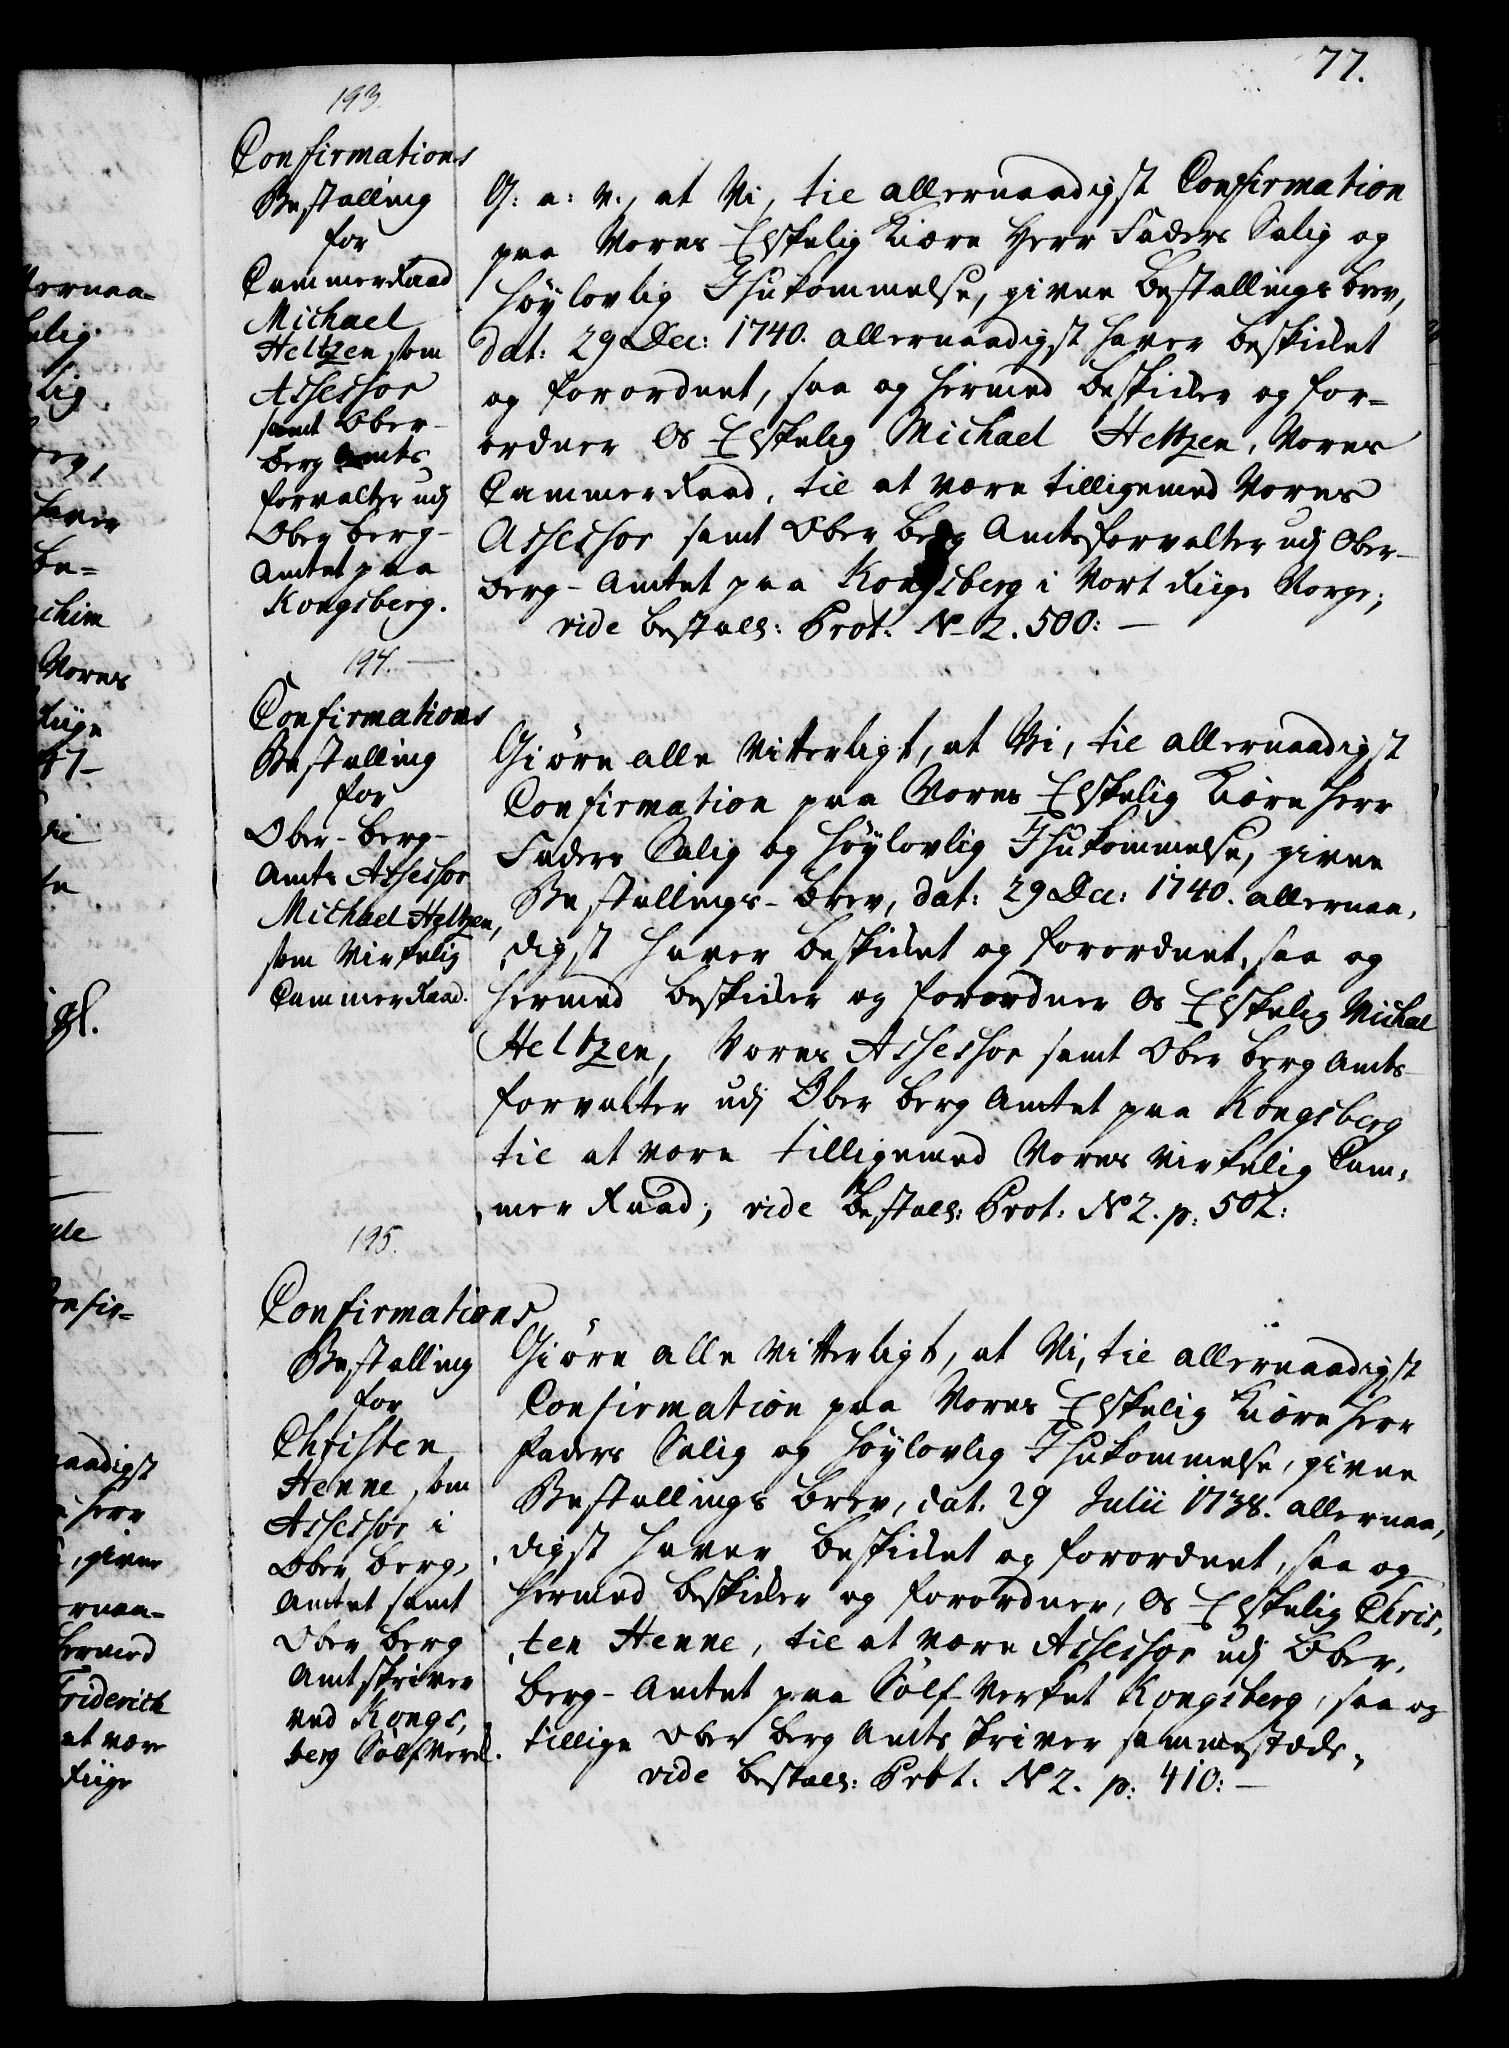 77.
193.
Confirmations
Bestalling
for
CammerRaad
Michael
Heltzen som
Assessor
samt Ober-
berg Amts
forvalter udj
Ober berg-
Amtet paa
Kongsberg.
G: a: V:, at Vi, til allernaadigst Confirmation
paa Vores Elskelig Kiære Herr Faders Salig og
Høylovlig Ihukommelse, givne Bestallings brev,
dat: 29 Dec: 1740. allernaadigst haver beskicket
og forordnet, saa og hermed beskicker og for-
ordner Os Elskelig Michael Heltzen, Vores
CammerRaad, til at være tilligemed Vores
Assessor samt Ober Berg Amtsforvalter udj Ober-
berg-Amtet paa Kongsberg i Vort Riige Norge;
vide Bestall: Prot: No 2. 500: —
194.
Confirmations
Bestalling
for
Ober-berg-
Amts Assessor
Michael Heltzen,
som Virkelig
CammerRaad.
Giøre alle Vitterligt, at Vi, til allernaadigst
Confirmation paa Vores Elskelig Kiære Herr
Faders Salig og Høylovlig Ihukommelse, givne
Bestallings-brev, dat: 29 Dec: 1740. allernaa,
digst haver beskicket og forordnet, saa og
hermed beskicker og forordner Os Elskelig Michael
Heltzen, Vores Assessor samt Ober berg Amts
forvalter udj Ober berg Amtet paa Kongsberg
til at være tilligemed Vores Virkelig Cam,
mer Raad; vide Bestall: Prot: No 2. p: 502:
195.
Confirmations
Bestalling
for
Christen
Henne som
Assessor i
Ober berg,
Amtet samt
Ober berg
Amtskriver
ved Kongs,
berg SølfVerck.
Giøre alle Vitterligt, at Vi, til allernaadigst
Confirmation paa Vores Elskelig Kiære Herr
Faders Salig og Høylovlig Ihukommelse, givne
Bestallings brev, dat. 29 Julii 1738. allernaa,
digst haver beskicket og forordnet, saa og
hermed beskicker og forordner, Os Elskelig Chris,
ten Henne, til at være Assessor udj Ober,
berg-Amtet paa Sølf-Verket Kongsberg, saa og
tillige Ober berg Amts skriver sammestæds,
vide Bestall: Prot. No 2. p: 410: —